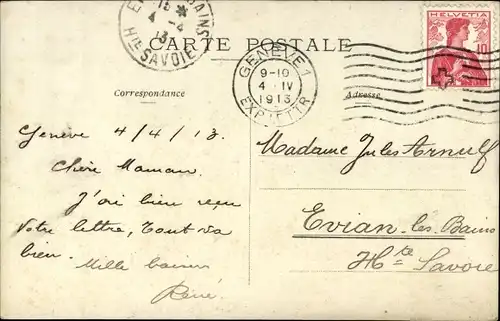 EVIAN-LES-BAINS
15 *
4 -4
13
Hte SAVOIE
CARTE POSTALE
HELVETIA
10
GENÈVE 1
9-10
4 IV
1913
EXP. LETTR
Correspondance
Adresse
Genève 4/4/13.
Chère Maman,
J'ai bien reçu
votre lettre, tout va
bien.
Mille baisers
René.
Madame Jules Arnulf
Evian-les-Bains
Hte Savoie